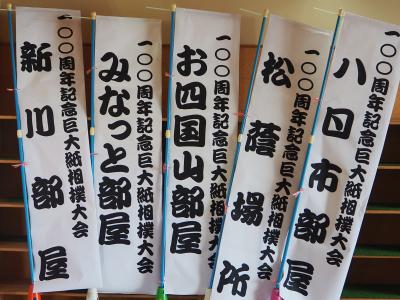 一〇〇周年記念巨大紙相撲大会
八日市部屋
一〇〇周年記念巨大紙相撲大会
松蔭場所
一〇〇周年記念巨大紙相撲大会
お四国山部屋
一〇〇周年記念巨大紙相撲大会
みなっと部屋
一〇〇周年記念巨大紙相撲大会
新川部屋